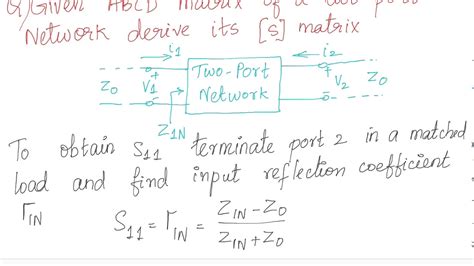 Q) Given ABCD matrix of a two port
Network derive its [S] matrix
i1 i2
Z0 + V1 Two-Port Network + V2 Z0
- -
Z1N
To obtain S11 terminate port 2 in a matched
load and find input reflection coefficient
ΓIN S11 = ΓIN = ZIN - Z0 / ZIN + Z0